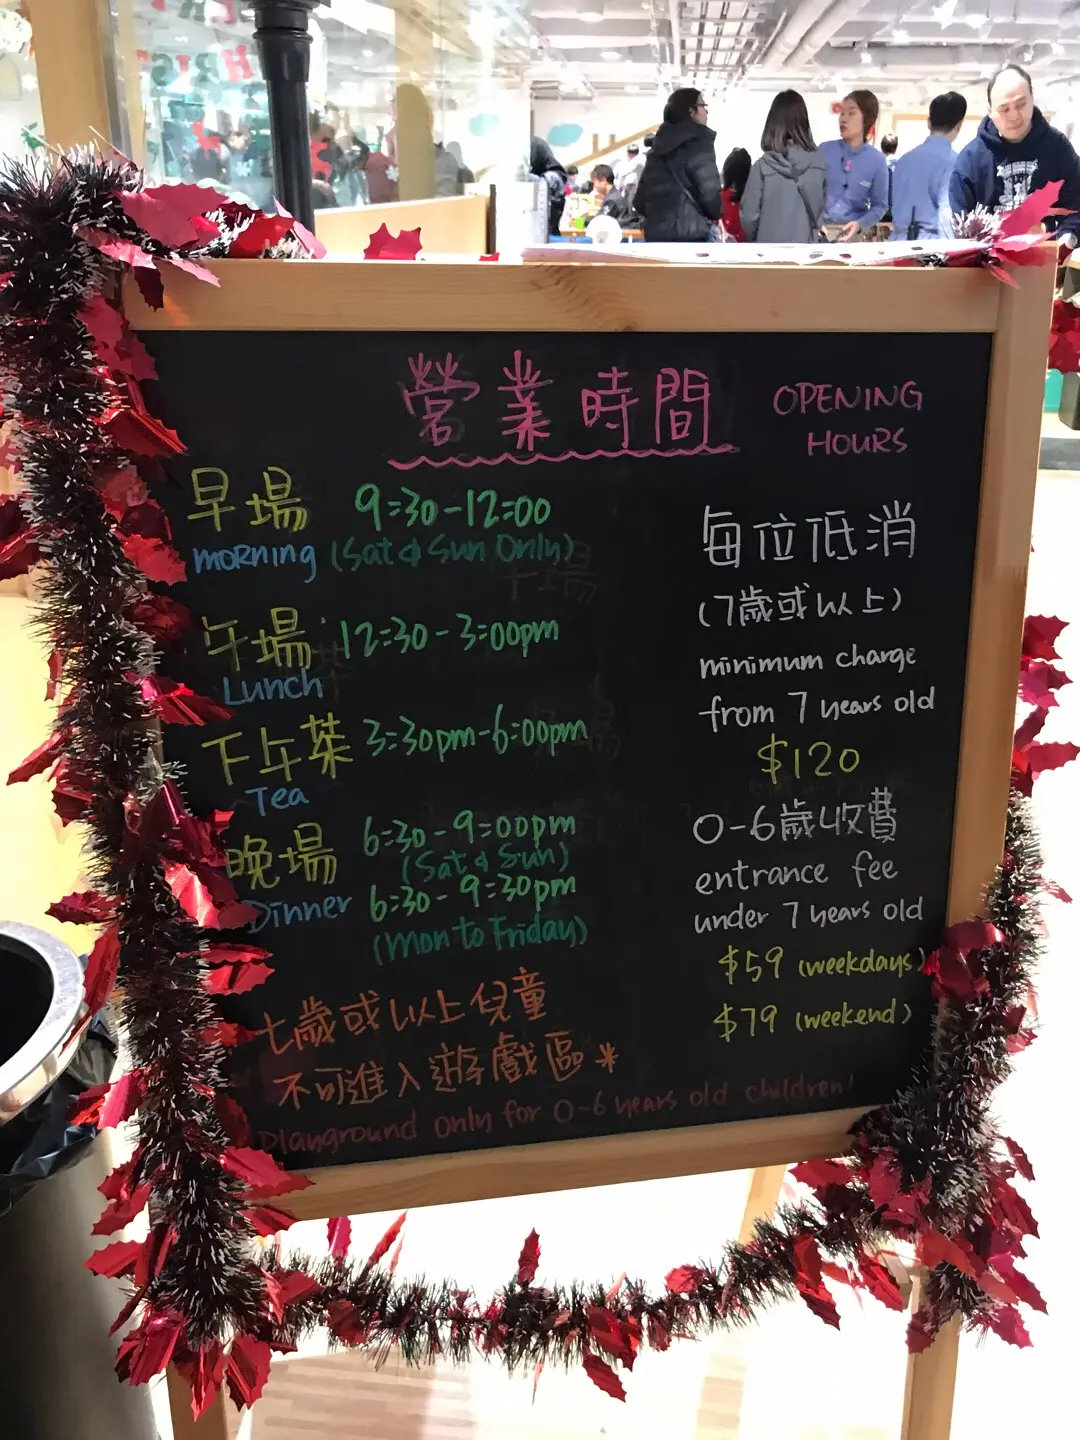 營業時間
OPENING
HOURS
早場 9:30-12:00
morning (Sat & Sun Only)
午場 12:30-3:00pm
Lunch
下午茶 3:30pm-6:00pm
Tea
晚場 6:30-9:00pm
(Sat & Sun)
Dinner 6:30-9:30pm
(Mon to Friday)
七歲或以上兒童
不可進入遊戲區*
Playground only for 0-6 years old children!
每位低消
(7歲或以上)
minimum charge
from 7 years old
$120
0-6歲收費
entrance fee
under 7 years old
$59 (weekdays)
$79 (weekend)